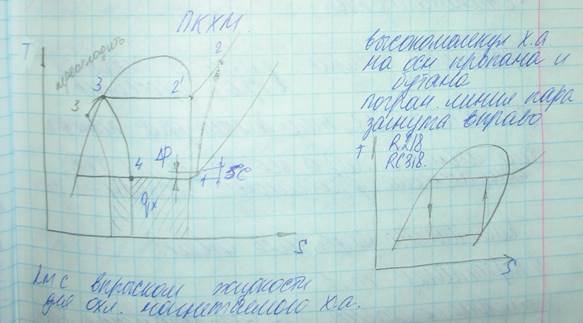 ПКХМ
T
2
переохладить
3
2'
3
4
ΔP
5°C
qx
S
высокомолекул х.а
на осн пропана и
бутана
погран. линия пара
загнута вправо
T
R218
RC318.
S
с впрыском жидкости
для охл. нагнетаемого х.а.